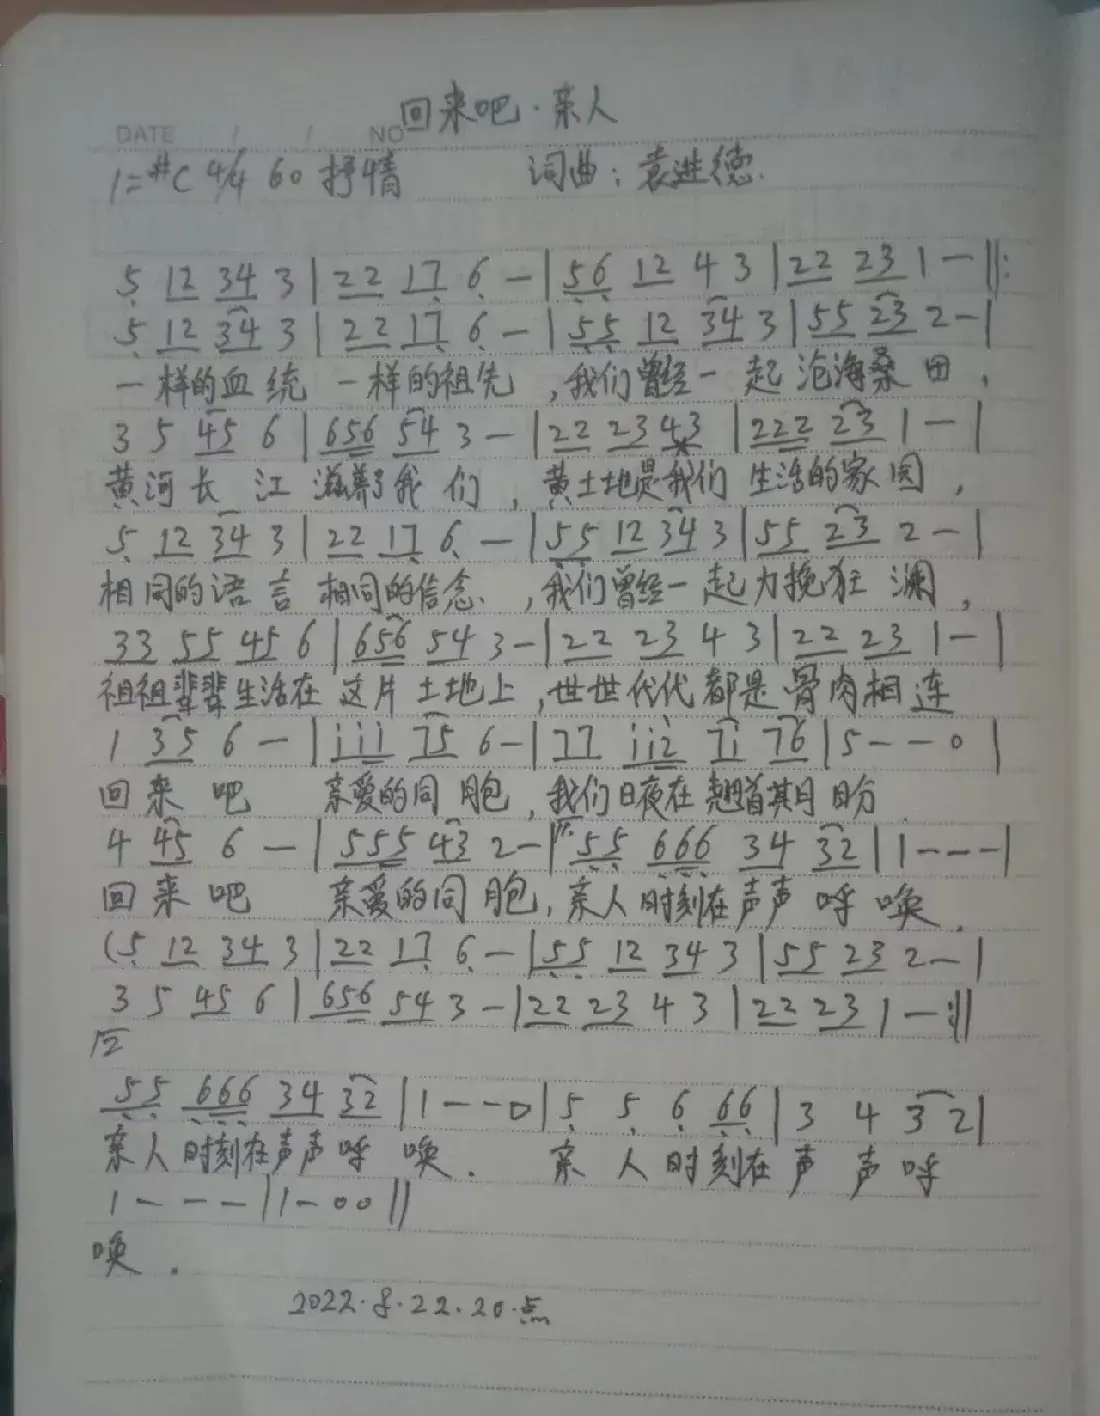 回来吧·亲人
DATE / / NO
1=#C 4/4 60 抒情 词曲：袁进德.
5 12 34 3 | 22 17 6 — | 56 12 4 3 | 22 23 1 — ‖:
5 12 34 3 | 22 17 6 — | 55 12 34 3 | 55 23 2 — |
一样的血统 一样的祖先，我们曾经一起沧海桑田，
3 5 45 6 | 656 54 3 — | 22 23 43 | 222 23 1 — |
黄河长江滋养了我们，黄土地是我们生活的家园，
5 12 34 3 | 22 17 6 — | 55 12 34 3 | 55 23 2 — |
相同的语言 相同的信念、，我们曾经一起力挽狂澜，
33 55 45 6 | 656 54 3 — | 22 23 4 3 | 22 23 1 — |
祖祖辈辈生活在这片土地上，世世代代都是骨肉相连
1 35 6 — | i i i 75 6 — | 77 i i 2 7i 76 | 5 — — 0 |
回来吧 亲爱的同胞，我们日夜在翘首期盼
4 45 6 — | 555 43 2 — | 55 666 34 32 | 1 — — — |
回来吧 亲爱的同胞，亲人时刻在声声呼唤.
(5 12 34 3 | 22 17 6 — | 55 12 34 3 | 55 23 2 — |
3 5 45 6 | 656 54 3 — | 22 23 4 3 | 22 23 1 — :‖
2
55 666 34 32 | 1 — — 0 | 5 5 6 66 | 3 4 3 2 |
亲人时刻在声声呼唤. 亲人时刻在声声呼
1 — — — | 1 — 0 0 ‖
唤.
2022.8.22.20.点